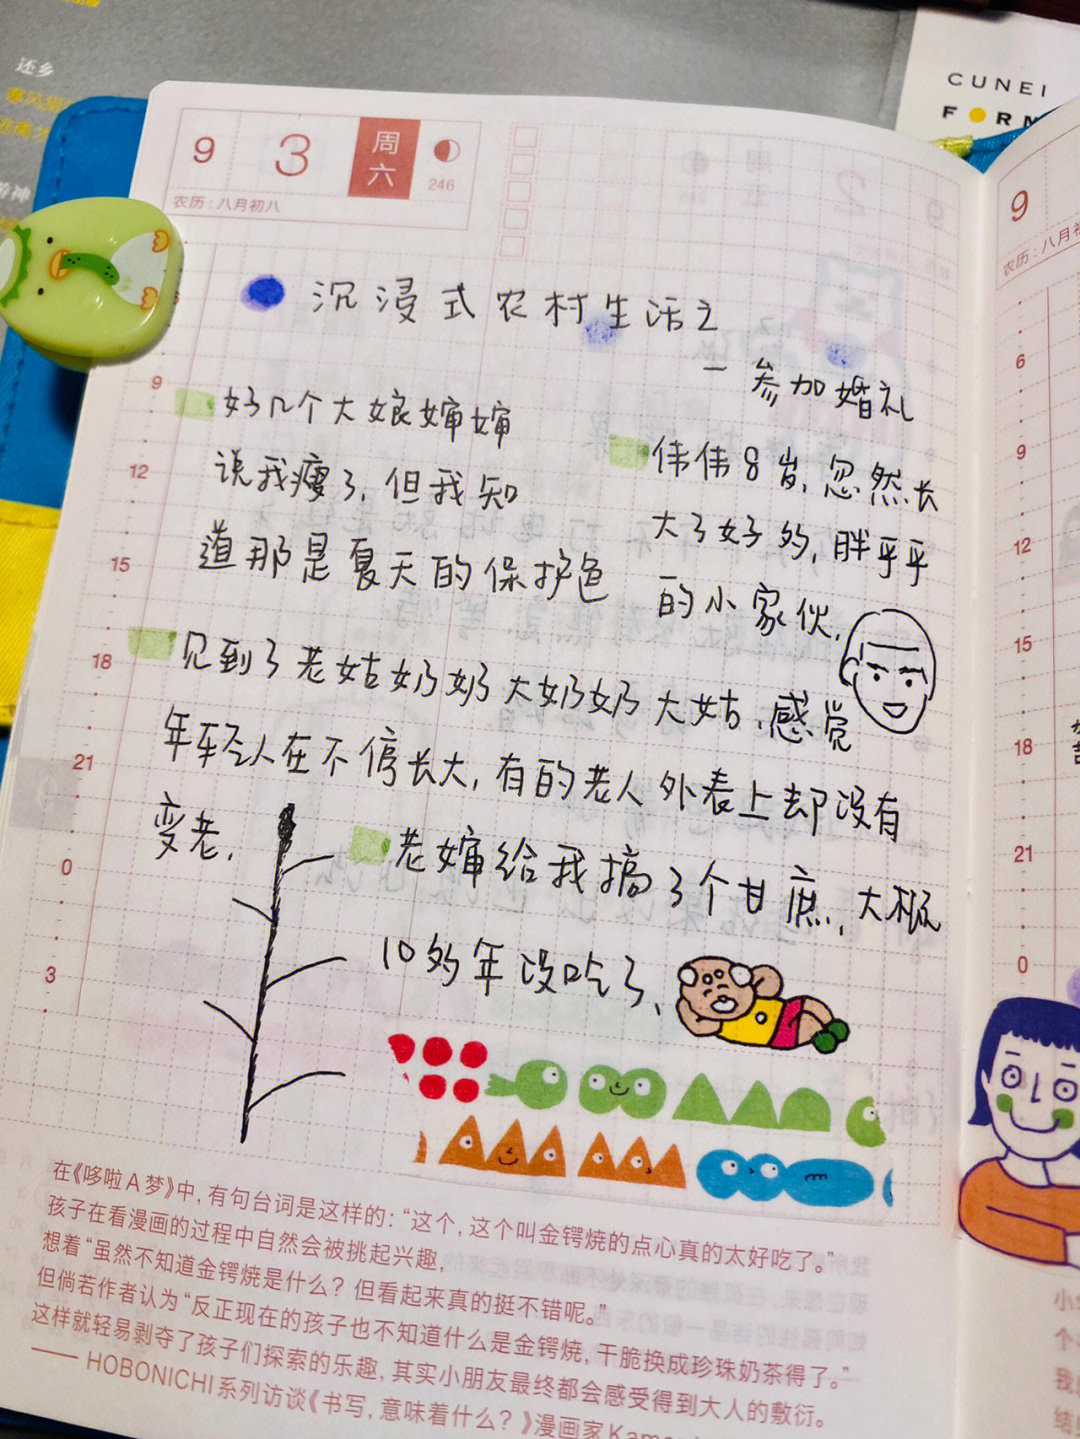 还乡
CUNEI
FORM
9 3 周六
246
农历：八月初八
沉浸式农村生活之
一参加婚礼
好几个大娘婶婶
说我瘦了,但我知
道那是夏天的保护色
伟伟8岁,忽然长
大了好多,胖乎乎
的小家伙,
见到了老姑奶奶大奶奶大姑.感觉
年轻人在不停长大,有的老人外表上却没有
变老,
老婶给我搞了个甘庶,大概
10多年没吃了、
9
12
15
18
21
0
3
在《哆啦A梦》中，有句台词是这样的：“这个，这个叫金锷烧的点心真的太好吃了。”
孩子在看漫画的过程中自然会被挑起兴趣，
想着“虽然不知道金锷烧是什么？但看起来真的挺不错呢。”
但倘若作者认为“反正现在的孩子也不知道什么是金锷烧，干脆换成珍珠奶茶得了。”
这样就轻易剥夺了孩子们探索的乐趣，其实小朋友最终都会感受得到大人的敷衍。
—— HOBONICHI系列访谈《书写，意味着什么？》漫画家
9
农历：八月初
6
9
12
15
18
21
0